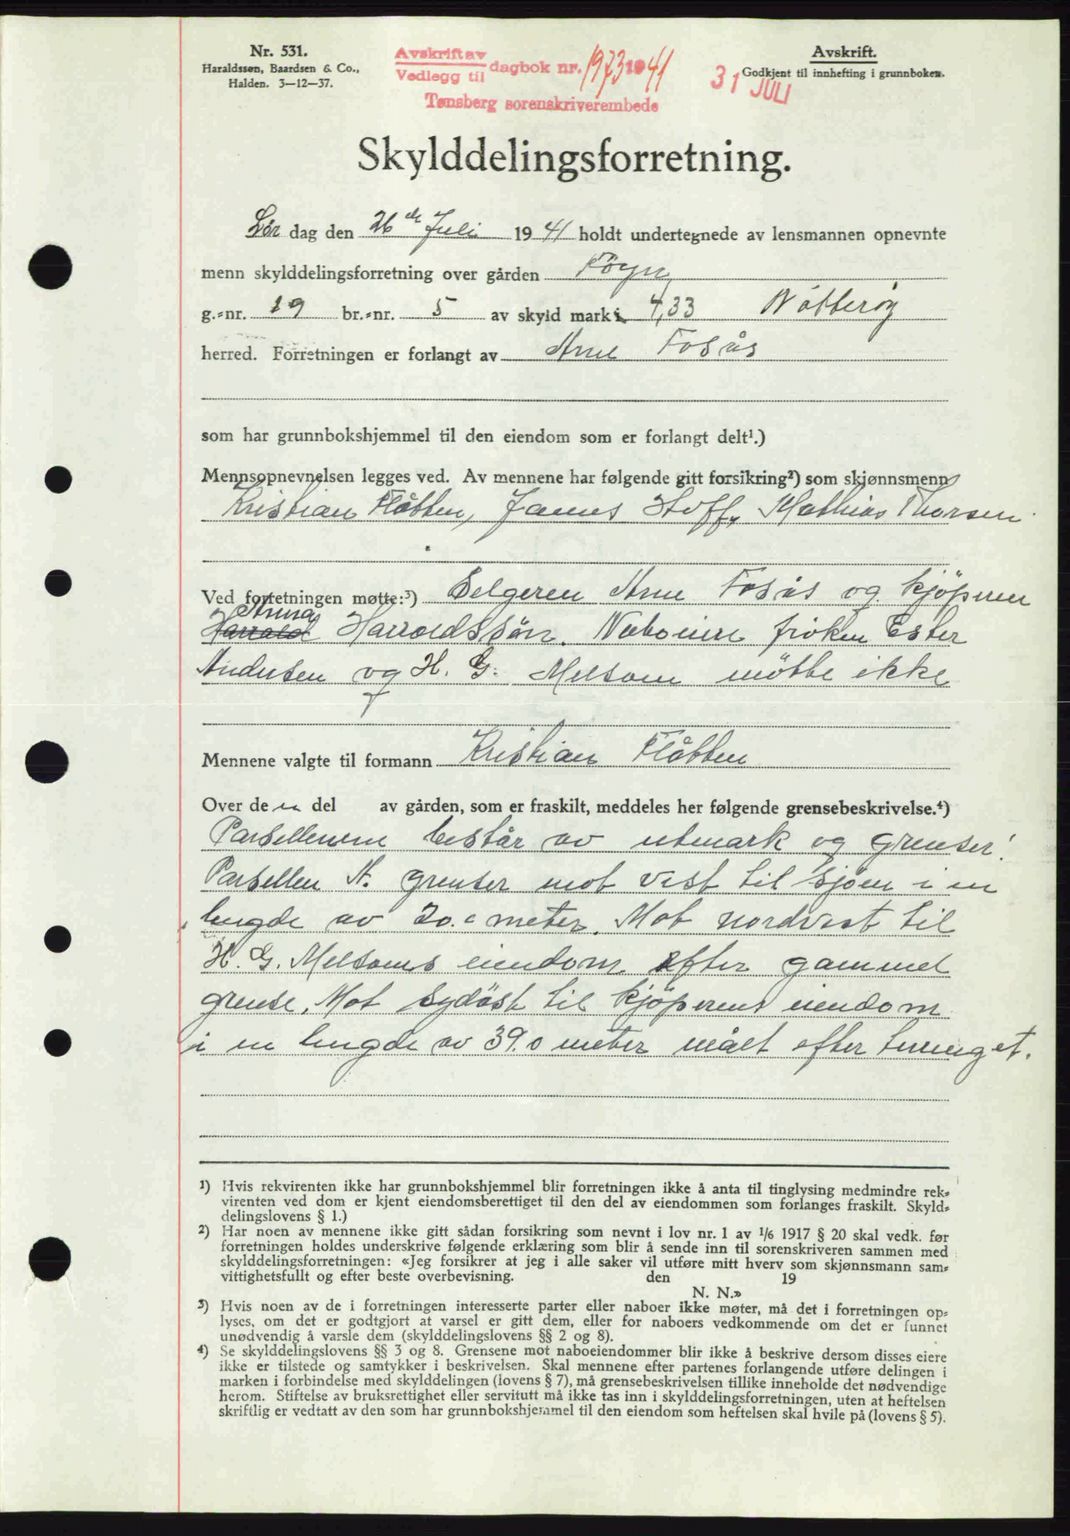 Nr. 531.
Haraldssen, Baardsen & Co.,
Halden. 3—12—37.
Avskrift av
Vedlegg til dagbok nr. 1973 1941
Tønsberg sorenskriverembede
31 JULI
Avskrift.
Godkjent til innhefting i grunnboken.
Skylddelingsforretning.
Lør dag den 26de Juli 19 41 holdt undertegnede av lensmannen opnevnte
menn skylddelingsforretning over gården Föyn
g.-nr. 19 br.-nr. 5 av skyld mark 4,33 Nötteröy
herred. Forretningen er forlangt av Arne Fosås
som har grunnbokshjemmel til den eiendom som er forlangt delt¹.)
Mennsopnevnelsen legges ved. Av mennene har følgende gitt forsikring²) som skjønnsmenn
Kristian Flåtten, James Hoff, Mathias Thorsen
Ved forretningen møtte:³) Selgeren Arne Fosås og kjöperen
Anna
Harrald Harroldssön. Naboeire fröken Ester
Andersen og H. G. Melsom mötte ikke
Mennene valgte til formann Kristian Flåtten
Over den del av gården, som er fraskilt, meddeles her følgende grensebeskrivelse.⁴)
Parsellenem består av utmark og grenser!
Parsellen N. grenser mot vest til sjöen i en
lengde av 20.0 meter. Mot nordvest til
H. G. Melsoms eiendom efter gammel
grense. Mot sydöst til kjöperens eiendom
i en lengde av 39.0 meter målt efter terrenget.
¹) Hvis rekvirenten ikke har grunnbokshjemmel blir forretningen ikke å anta til tinglysing medmindre rek-
virenten ved dom er kjent eiendomsberettiget til den del av eiendommen som forlanges fraskilt. Skyld-
delingslovens § 1.)
²) Har noen av mennene ikke gitt sådan forsikring som nevnt i lov nr. 1 av 1/6 1917 § 20 skal vedk. før
forretningen holdes underskrive følgende erklæring som blir å sende inn til sorenskriveren sammen med
skylddelingsforretningen: «Jeg forsikrer at jeg i alle saker vil utføre mitt hverv som skjønnsmann sam-
vittighetsfullt og efter beste overbevisning. den 19
N. N.»
³) Hvis noen av de i forretningen interesserte parter eller naboer ikke møter, må det i forretningen op-
lyses, om det er godtgjort at varsel er gitt dem, eller for naboers vedkommende om det er funnet
unødvendig å varsle dem (skylddelingslovens §§ 2 og 8).
⁴) Se skylddelingslovens §§ 3 og 8. Grensene mot naboeiendommer blir ikke å beskrive dersom disses eiere
ikke er tilstede og samtykker i beskrivelsen. Skal mennene efter partenes forlangende utføre delingen i
marken i forbindelse med skylddelingen (lovens § 7), må grensebeskrivelsen tillike inneholde det nødvendige
herom. Stiftelse av bruksrettighet eller servitutt må ikke tas inn i skylddelingsforretningen, uten at heftelsen
skriftlig er vedtatt av den som har grunnbokshjemmel til den eiendom som heftelsen skal hvile på (lovens § 5).